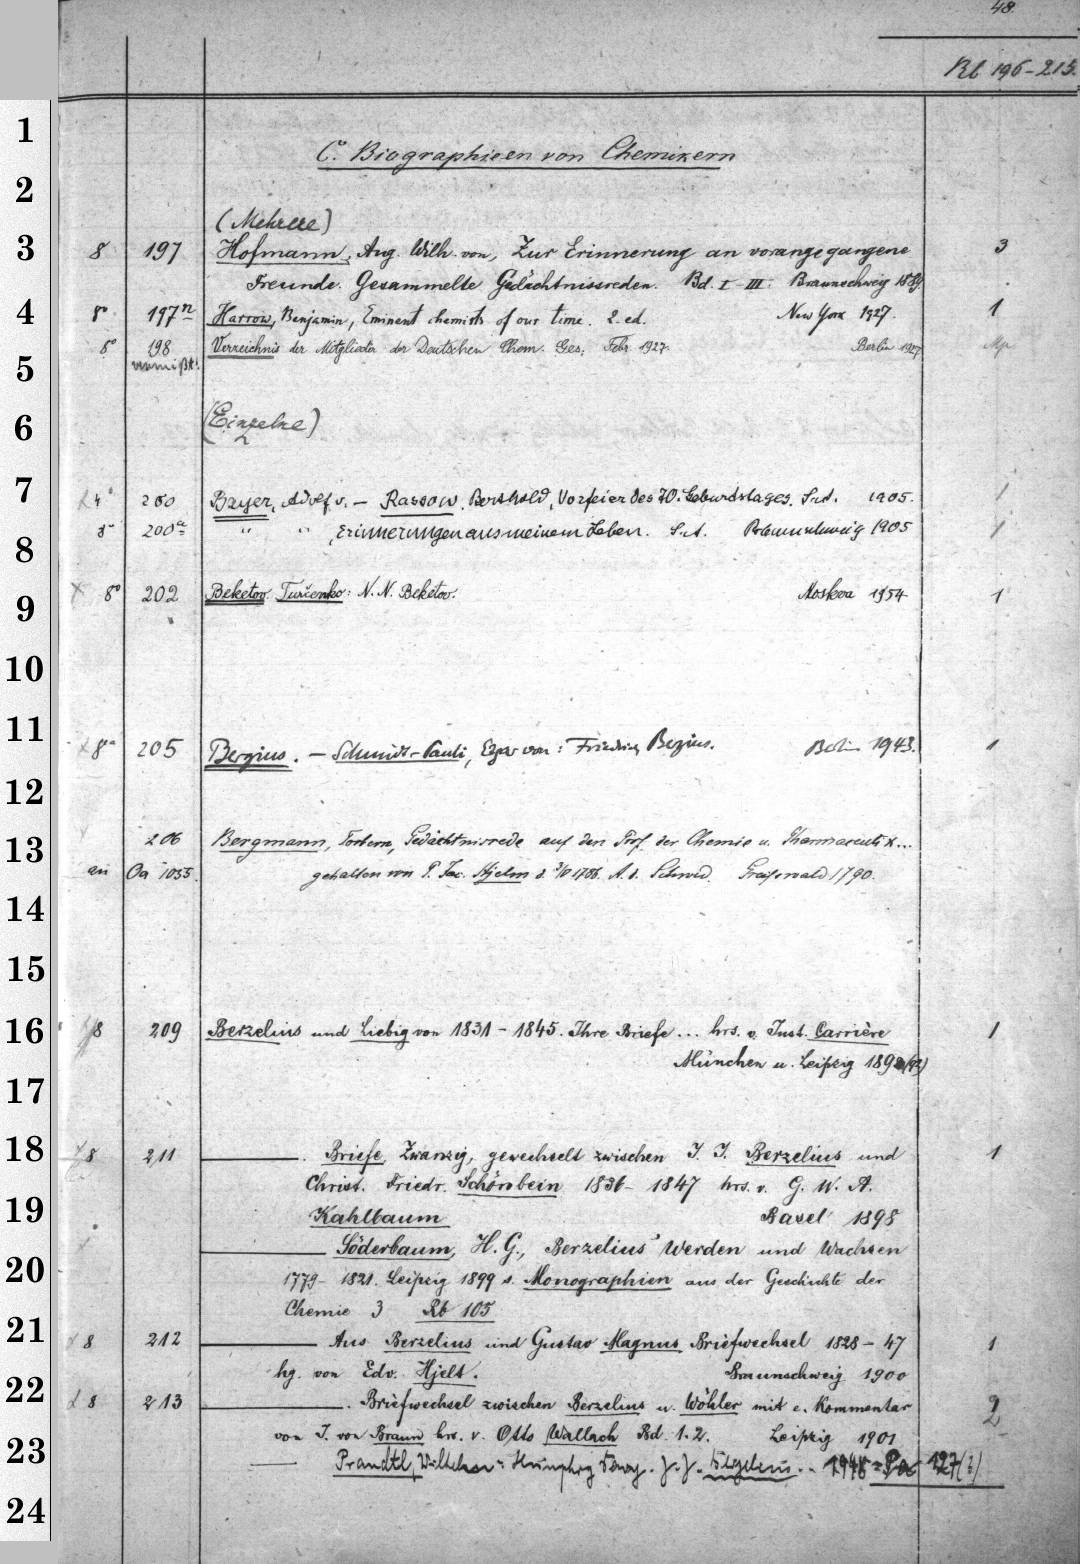 48.
Rb 196-215.
1
C. Biographieen von Chemikern
2
(Mehrere)
3 8 197 Hofmann, Aug. Wilh. von, Zur Erinnerung an vorangegangene 3
Freunde. Gesammelte Gedächtnissreden. Bd. I-III. Braunschweig
4 8° 197 Harrow, Benjamin, Eminent chemists of our time. 2. ed. New York 1927. 1
8° 198 Verzeichnis der Mitglieder der Deutschen Chem. Ges. Febr. 1927. Berlin 1927
5 vermißt.
6 (Einzelne)
7 4° 200 Bayer, Adolf v. — Rassow, Berthold, Vorfeier des 70. Geburdstages. S.A. 1905. 1
8 8° 200a " " , Erinnerungen aus meinem Leben. S.A. Braunschweig 1905 1
9 8° 202 Beketov. Turčenko: N. N. Beketov. Moskva 1954 1
10
11 8° 205 Bergius. — Schmidt-Pauli, Edgar von: Friedrich Bergius. Berlin 1943. 1
12
13 206 Bergmann, Torbern, Gedächtnisrede auf den Prof. der Chemie u. Pharmaceutik...
an Oa 1055. gehalten von P. Jac. Hjelm d. 3/V 1786. A. d. Schwed. Greifswald 1790.
14
15
16 8 209 Berzelius und Liebig von 1831-1845. Ihre Briefe... hrs. v. Just. Carrière 1
München u. Leipzig
17
18 8 211 ——. Briefe, Zwanzig, gewechselt zwischen J. J. Berzelius und 1
Christ. Friedr. Schönbein 1836-1847 hrs. v. G. W. A.
19 Kahlbaum Basel 1898
—— Söderbaum, H. G., Berzelius' Werden und Wachsen
20 1779-1821. Leipzig 1899 s. Monographien aus der Geschichte der
Chemie 3 Rb 105
21 8 212 —— Aus Berzelius und Gustav Magnus Briefwechsel 1828-47 1
hg. von Edv. Hjelt. Braunschweig 1900
22 8 213 ——. Briefwechsel zwischen Berzelius u. Wöhler mit e. Kommentar 2
von J. von Braun hrs. v. Otto Wallach Bd. 1. 2. Leipzig 1901
23 —— Prandtl, Wilhelm: Humphry Davy. J. J. Berzelius. 1948 = Pa 127(?)
24